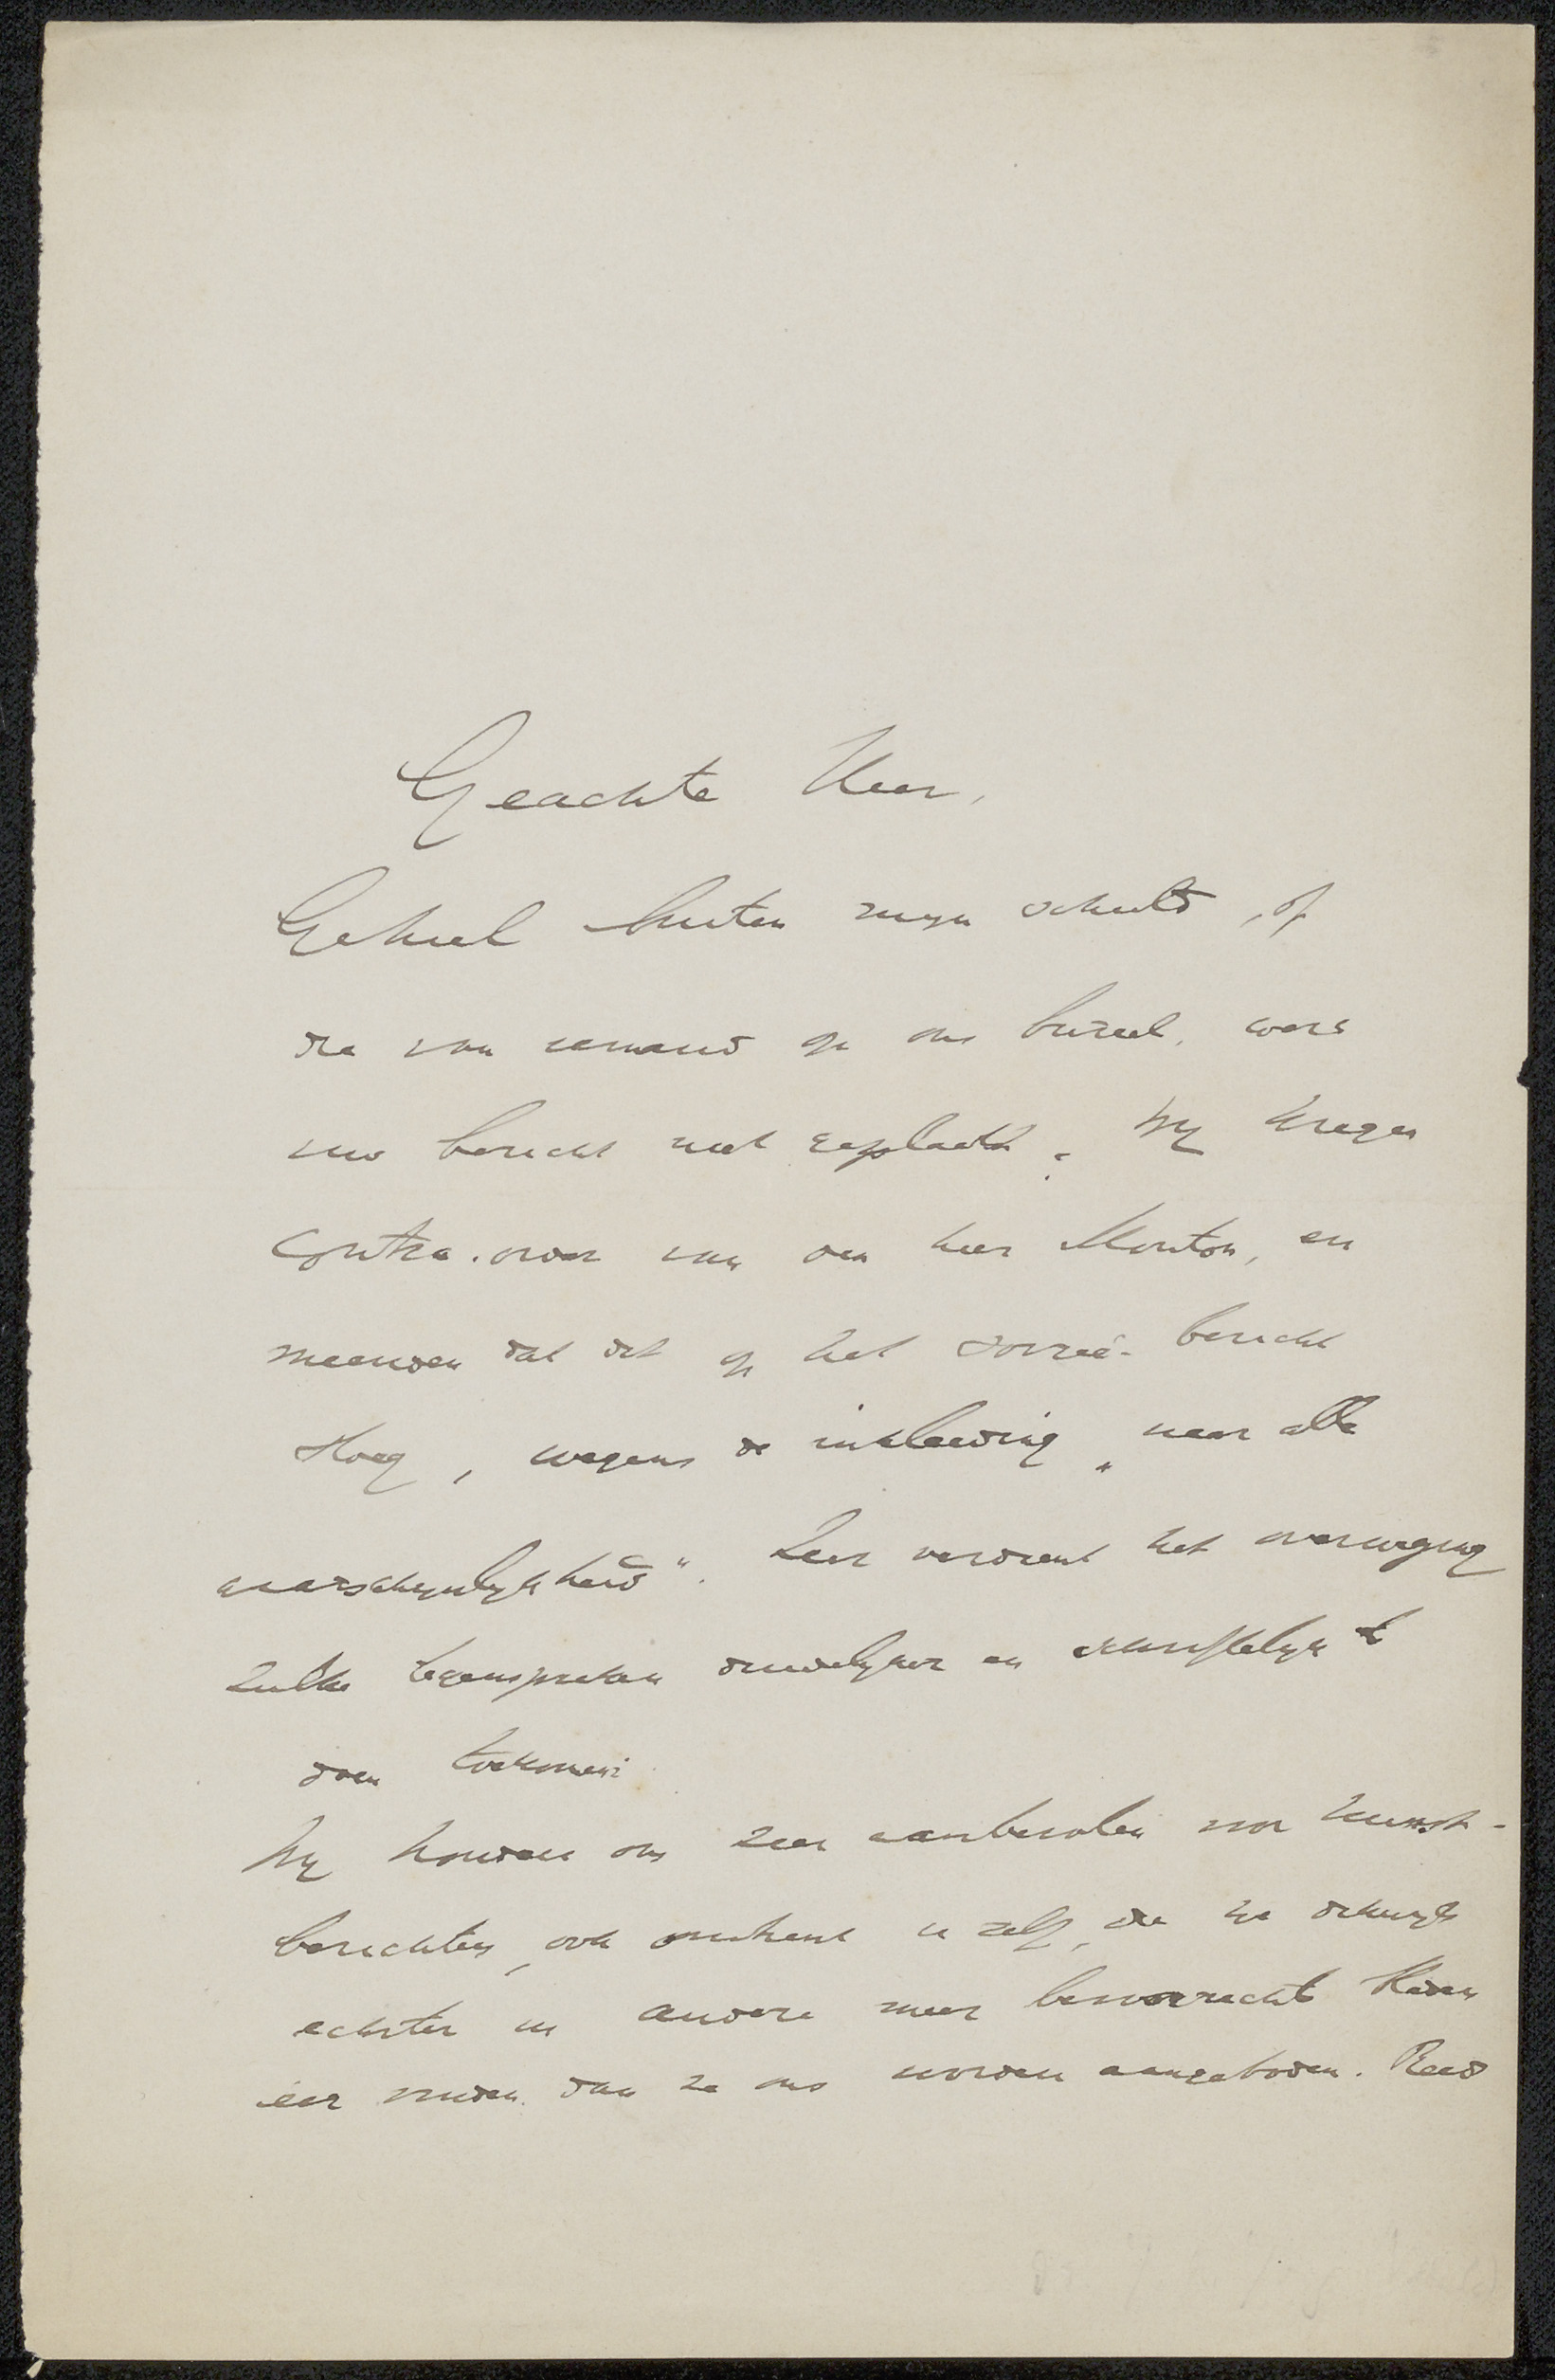 Geachte Heer,
Geheel buiten mijn schuld, of
die van iemand op ons bureel, werd
uw bericht niet geplaatst. Wij kregen
contra-order van den heer Mouton, en
meenden dat dit op het soirée-bericht
sloeg, wegens de inkleeding „naar alle
waarschijnlijkheid". Zeer verdient het overweging
zulke tegenspraken duidelijker en schriftelijk te
doen toekomen.
Wij houden ons zeer aanbevolen voor kunst-
berichten, ook omtrent u zelf, die we
echter in andere meer bevoorrechte bladen
eer vinden dan ze ons worden aangeboden. Reeds